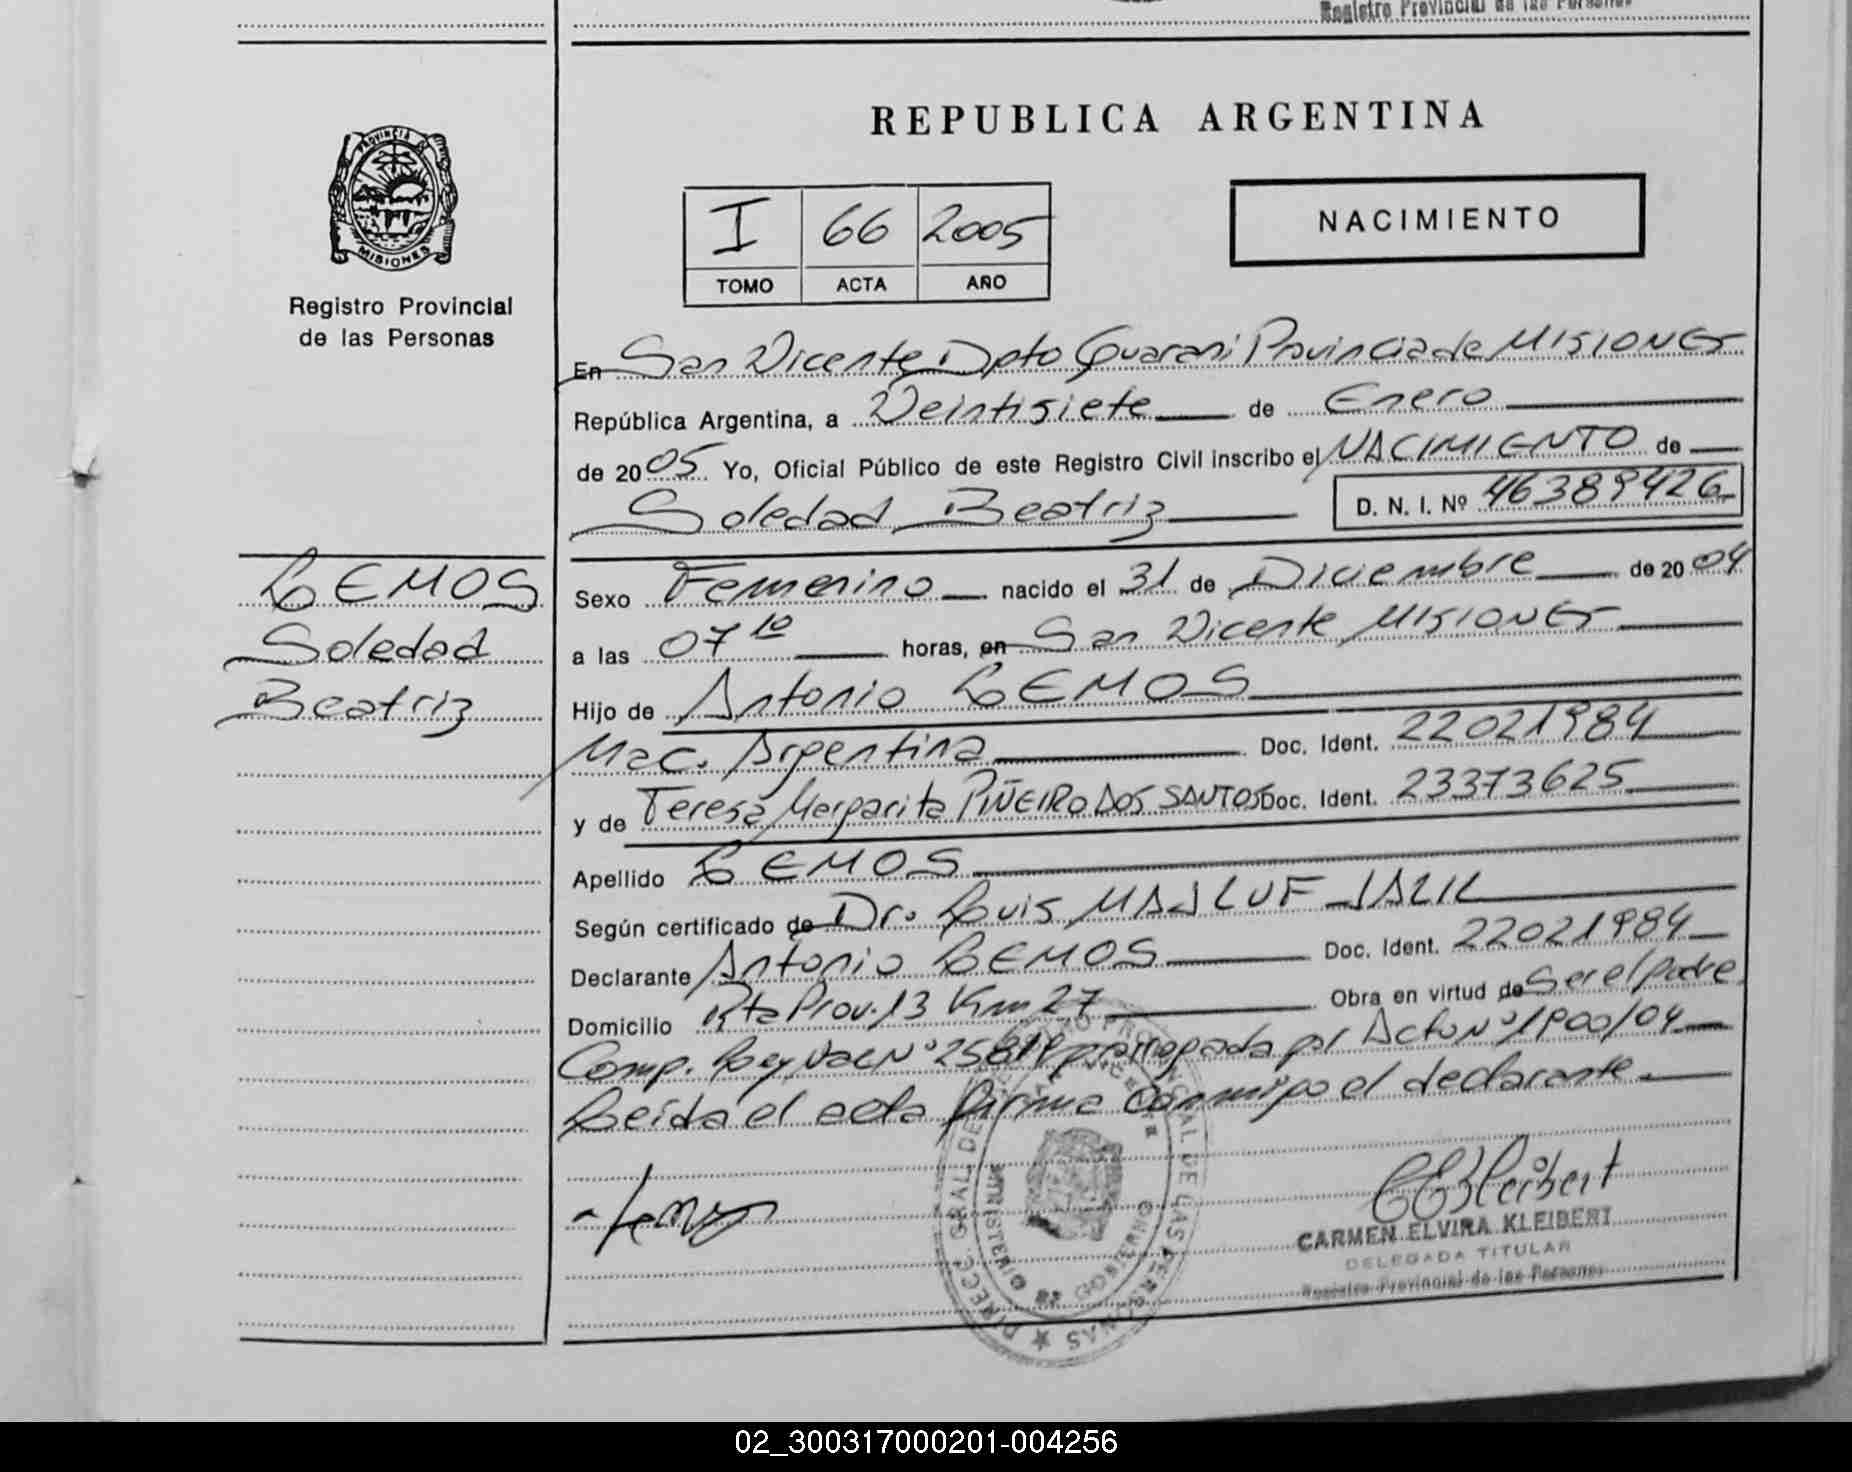 Registro Provincial de las Personas
REPUBLICA ARGENTINA
PROVINCIA DE
MISIONES
Registro Provincial
de las Personas
I 66 2005
TOMO ACTA AÑO
NACIMIENTO
En San Vicente Dpto Guarani Provincia de MISIONES
República Argentina, a Veintisiete de Enero
de 2005 Yo, Oficial Público de este Registro Civil inscribo el NACIMIENTO de
Soledad Beatriz D. N. I. Nº 46389426
LEMOS
Soledad
Beatriz
Sexo Femenino nacido el 31 de Diciembre de 2004
a las 07 10 horas, en San Vicente MISIONES
Hijo de Antonio LEMOS
Nac. Argentina Doc. Ident. 22021984
y de Teresa Margarita PIÑEIRO DOS SANTOS Doc. Ident. 23373625
Apellido LEMOS
Según certificado de Dr. Luis MAJLUF JALIL
Declarante Antonio LEMOS Doc. Ident. 22021984
Domicilio Rta Prov. 13 Km 27 Obra en virtud de Ser el padre
Comp. Ley Nac Nº 25819 prorrogada por Acto Nº 1900/04
Leída el acta firma conmigo el declarante
CARMEN ELVIRA KLEIBERT
DELEGADA TITULAR
Registro Provincial de las Personas
DIRECC. GRAL. DEL REGISTRO PROVINCIAL DE LAS PERSONAS
MINISTERIO DE GOBIERNO
02_300317000201-004256